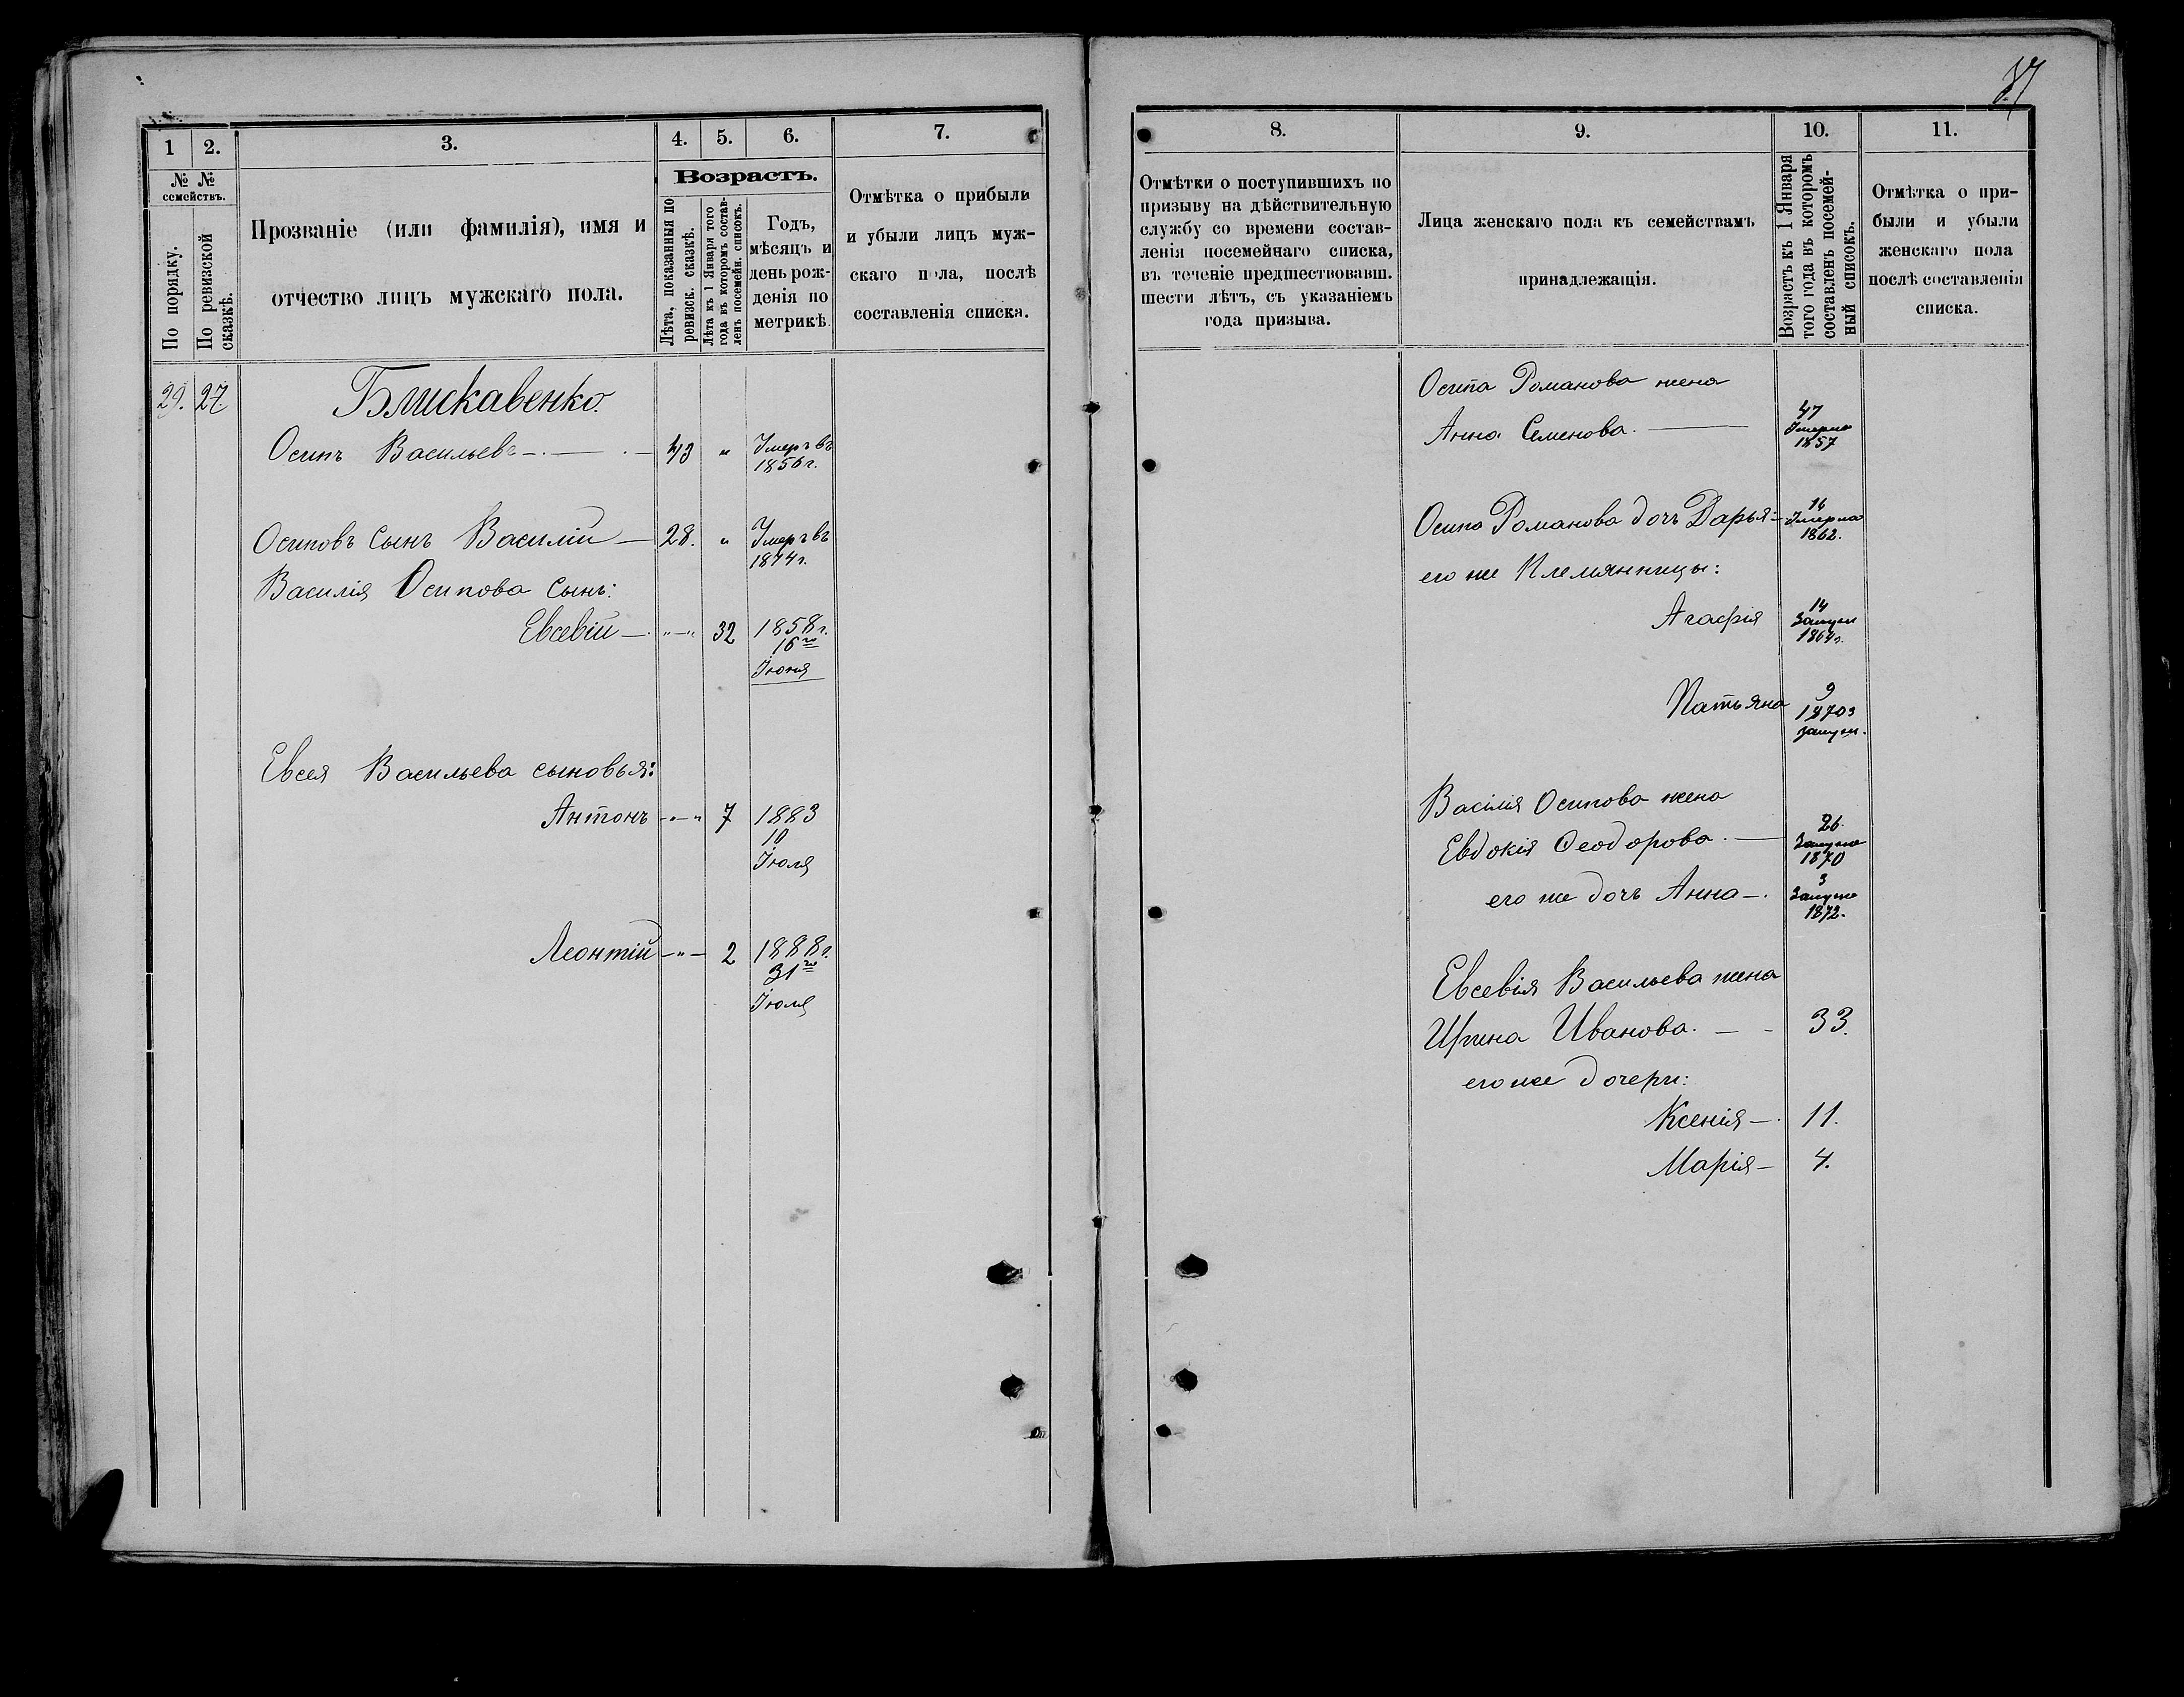 37
1
2.
3.
4.
5.
6.
7.
№ №
семействъ.
По порядку.
По ревизской
сказкѣ.
Прозваніе (или фамилія), имя и
отчество лицъ мужскаго пола.
Возрастъ.
Лѣта, показанныя по
ревизск. сказкѣ.
Лѣта къ 1 Января того
года въ которомъ состав-
ленъ посемейн. списокъ.
Годъ,
мѣсяцъ и
день рож-
денія по
метрикѣ.
Отмѣтка о прибыли
и убыли лицъ муж-
скаго пола, послѣ
составленія списка.
29. 27. Блискавенко.
Осипъ Васильевъ 43 " Умеръ въ
1856 г.
Осиповъ Сынъ Василій 28. " Умеръ въ
1874 г.
Василія Осипова Сынъ:
Евсевій " 32 1858 г.
16го
Іюня
Евсея Васильева сыновья:
Антонъ " 7 1883
10
Іюля
Леонтій " 2 1888 г.
31го
Іюля
8.
9.
10.
11.
Отмѣтки о поступившихъ по
призыву на дѣйствительную
службу со времени состав-
ленія посемейнаго списка,
въ теченіе предшествовавш.
шести лѣтъ, съ указаніемъ
года призыва.
Лица женскаго пола къ семействамъ
принадлежащія.
Возрастъ къ 1 Января
того года въ которомъ
составленъ посемей-
ный списокъ.
Отмѣтка о при-
были и убыли
женскаго пола
послѣ составленія
списка.
Осипа Романова жена
Анна Семенова. 47
Умерла
1857
Осипа Романова дочь Дарья 16
Умерла
1862.
его же Племянницы:
Агафія 14
Замуж
1864 г.
Татьяна 9
1870 г
замуж.
Василія Осипова жена
Евдокія Феодорова 26.
Замуже
1870
его же дочь Анна 3
Замуже
1872.
Евсевія Васильева жена
Ирина Иванова. 33.
его же дочери:
Ксенія 11.
Марія 4.